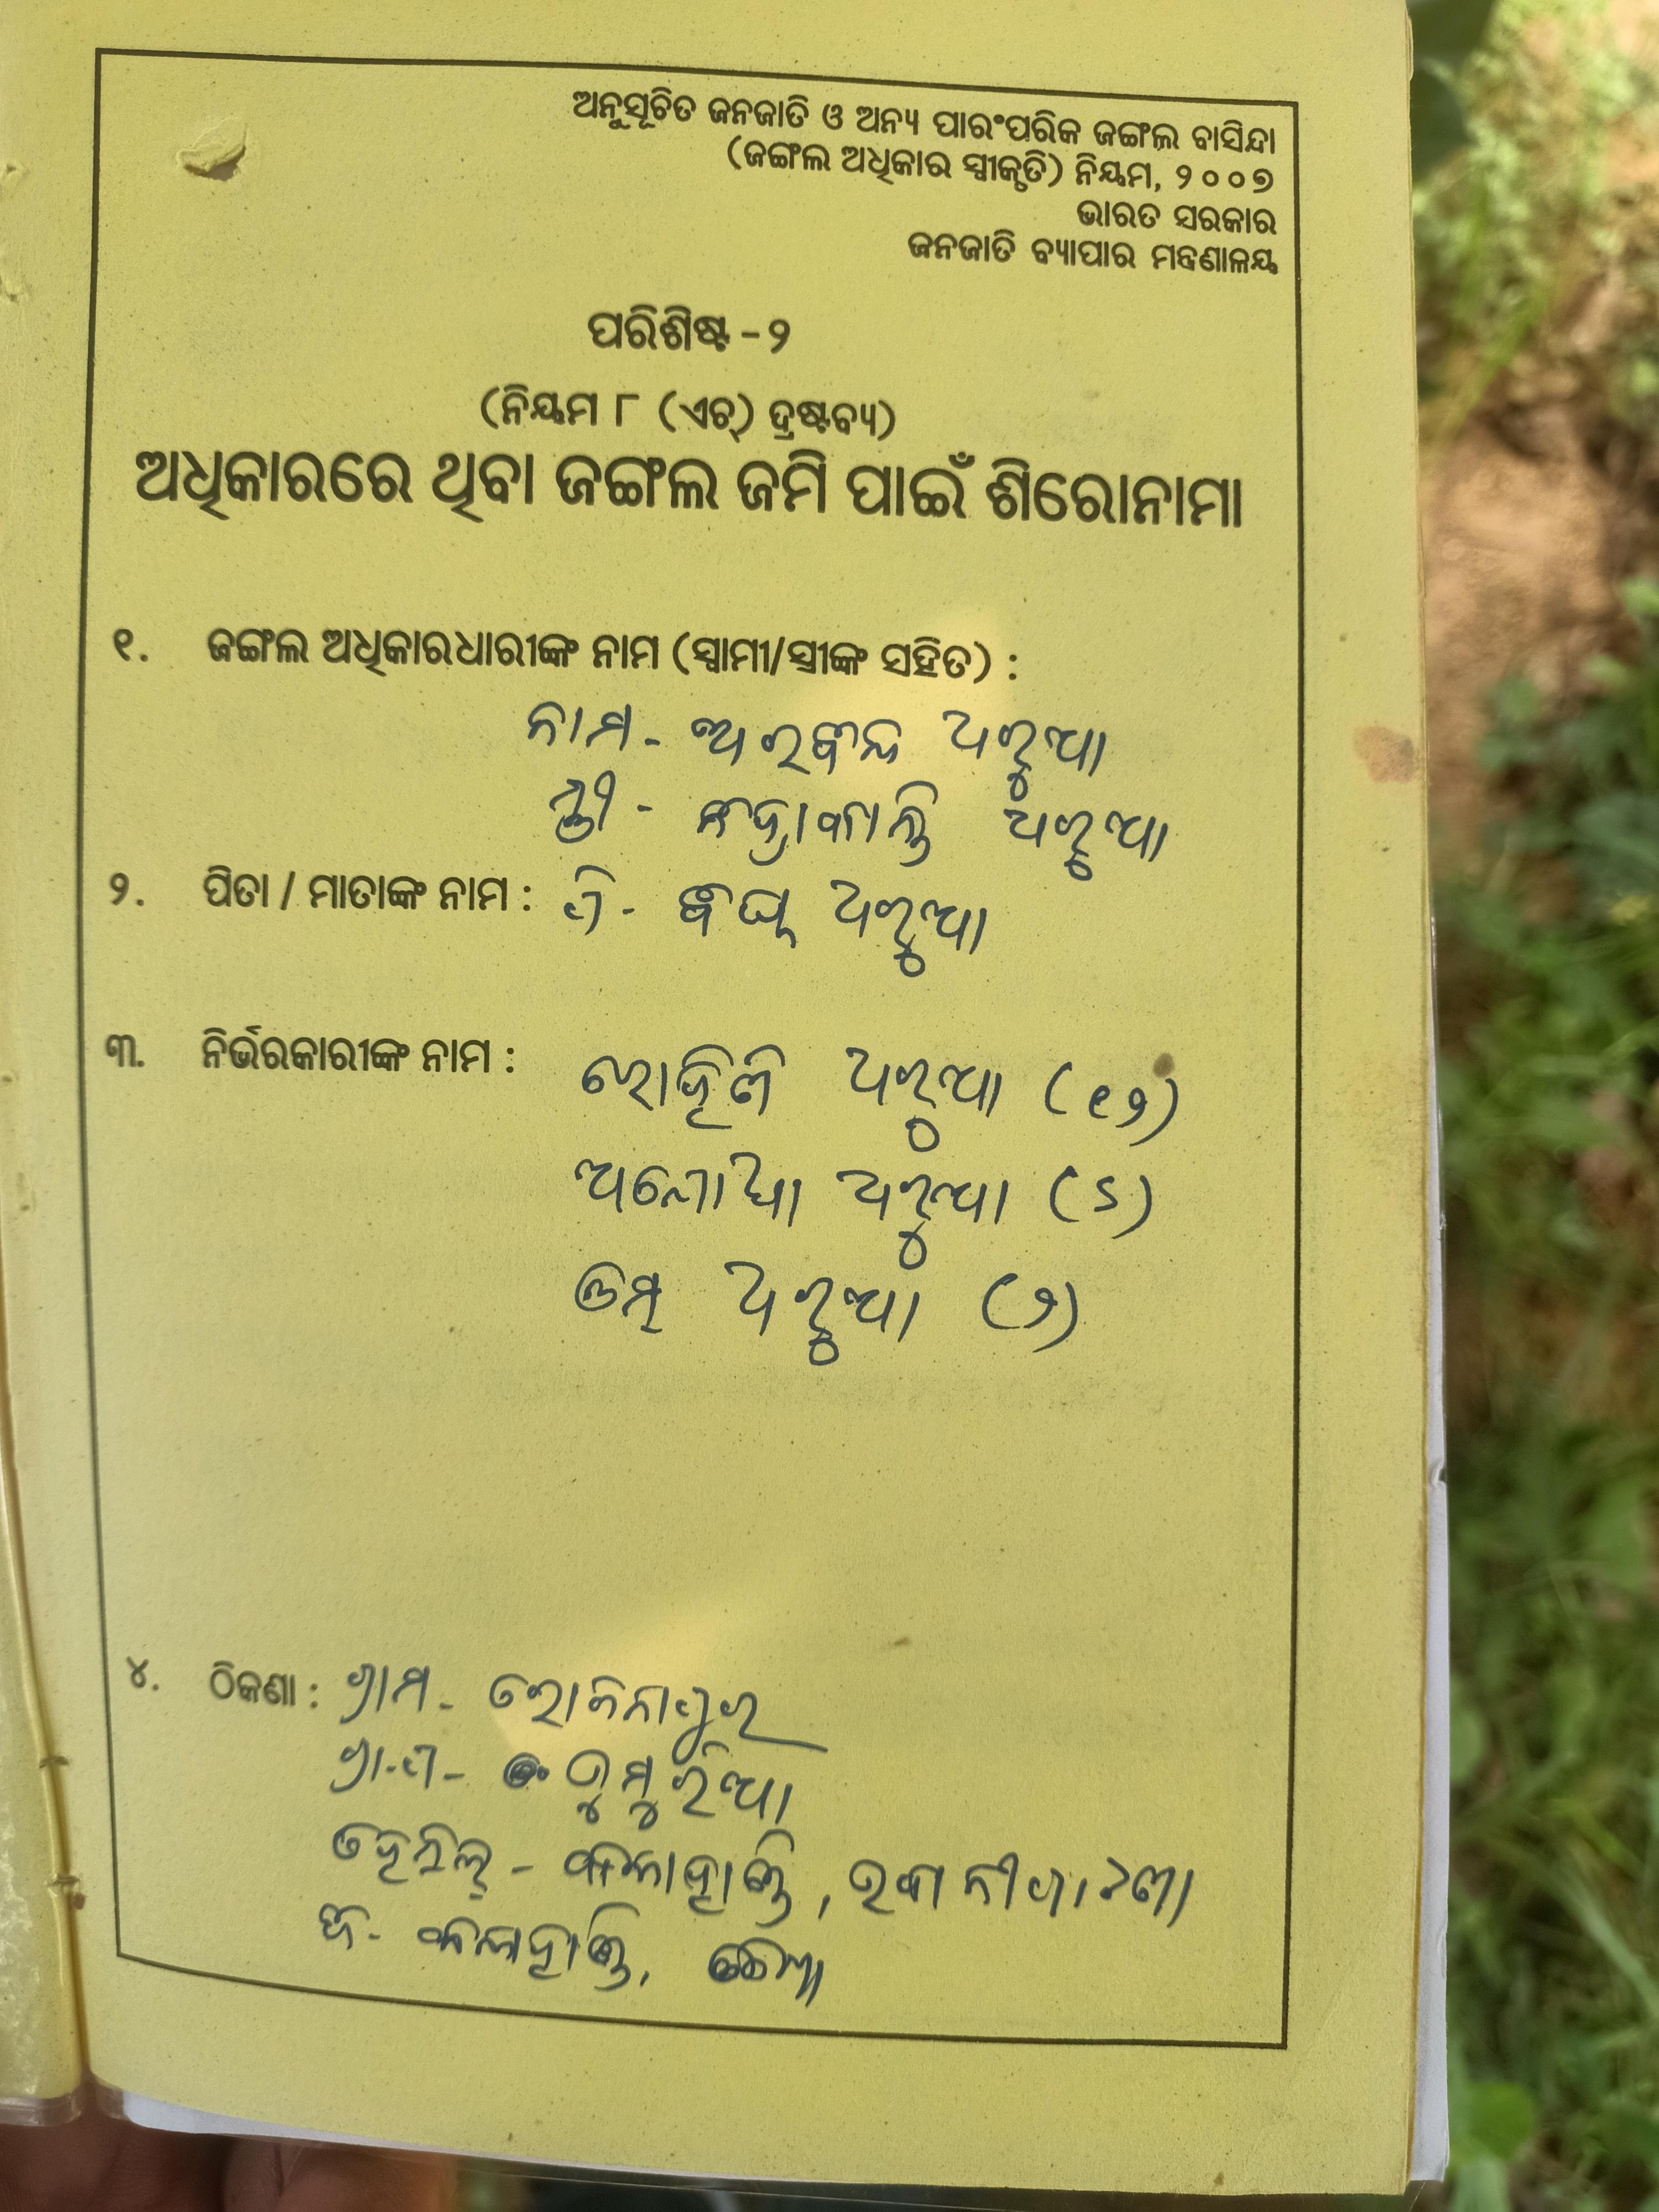 ଅନୁସୂଚିତ ଜନଜାତି ଓ ଅନ୍ୟ ପାରଂପରିକ ଜଙ୍ଗଲ ବାସିନ୍ଦା
(ଜଙ୍ଗଲ ଅଧିକାର ସ୍ୱୀକୃତି) ନିୟମ, ୨୦୦୭
ଭାରତ ସରକାର
ଜନଜାତି ବ୍ୟାପାର ମନ୍ତ୍ରଣାଳୟ
ପରିଶିଷ୍ଟ - ୨
(ନିୟମ ୮ (ଏଚ୍) ଦ୍ରଷ୍ଟବ୍ୟ)
ଅଧିକାରରେ ଥିବା ଜଙ୍ଗଲ ଜମି ପାଇଁ ଶିରୋନାମା
୧. ଜଙ୍ଗଲ ଅଧିକାରଧାରୀଙ୍କ ନାମ (ସ୍ୱାମୀ/ସ୍ତ୍ରୀଙ୍କ ସହିତ) :
ନାମ - ଅରବିନ୍ଦ ପଟୁଆ
ସ୍ତ୍ରୀ -
୨. ପିତା / ମାତାଙ୍କ ନାମ : ପି -
୩. ନିର୍ଭରକାରୀଙ୍କ ନାମ :
ରୋହିଣି (୧୨)
(୬)
(୨)
୪. ଠିକଣା : ଗ୍ରାମ -
ଗ୍ରା.ପ - ଡୁମୁରିଆ
ତହସିଲ୍ - କଳାହାଣ୍ଡି, ଭବାନୀପାଟଣା
ଜି - କଳାହାଣ୍ଡି,